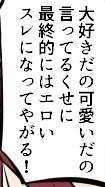 大好きだの可愛いだの
言ってるくせに
最終的にはエロい
スレになってやがる！